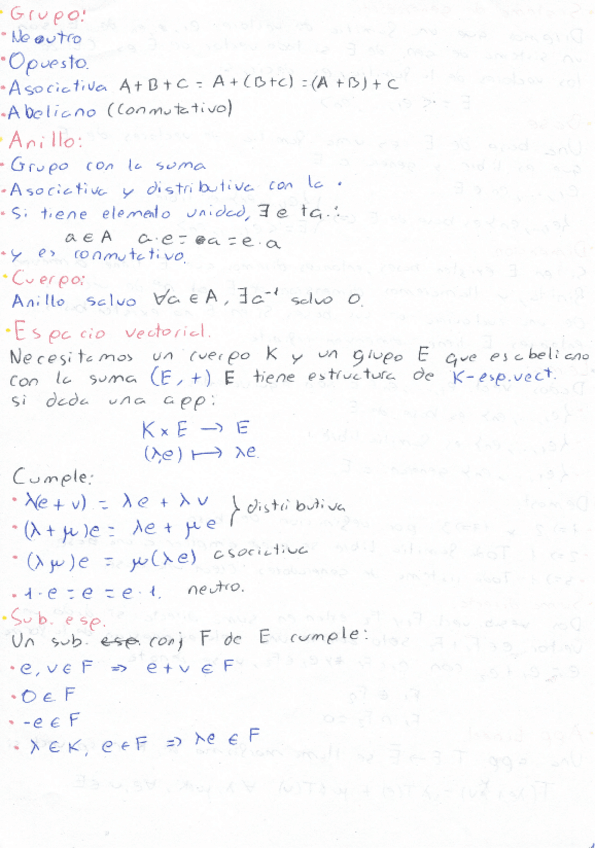 · Grupo:
· Neutro
· Opuesto.
· Asociativa A+B+C = A+(B+C) = (A+B)+C
· Abeliano (Conmutativo)
· Anillo:
· Grupo con la suma
· Asociativa y distributiva con la ·
· Si tiene elemento unidad, ∃ e ta.:
a ∈ A a·e = a = e·a
· y es conmutativo.
· Cuerpo:
Anillo salvo ∀a ∈ A, ∃a⁻¹ salvo 0.
· Espacio vectorial.
Necesitamos un cuerpo K y un grupo E que es abeliano
con la suma (E, +) E tiene estructura de K-esp.vect.
si dada una app:
K × E → E
(λ,e) ↦ λe
Cumple:
· λ(e+v) = λe + λv } distributiva
· (λ+μ)e = λe + μe
· (λμ)e = μ(λe) asociativa
· 1·e = e = e·1. neutro.
· Sub. esp.
Un sub. esp. conj F de E cumple:
· e, v ∈ F ⇒ e+v ∈ F
· 0 ∈ F
· -e ∈ F
· λ ∈ K, e ∈ F ⇒ λe ∈ F